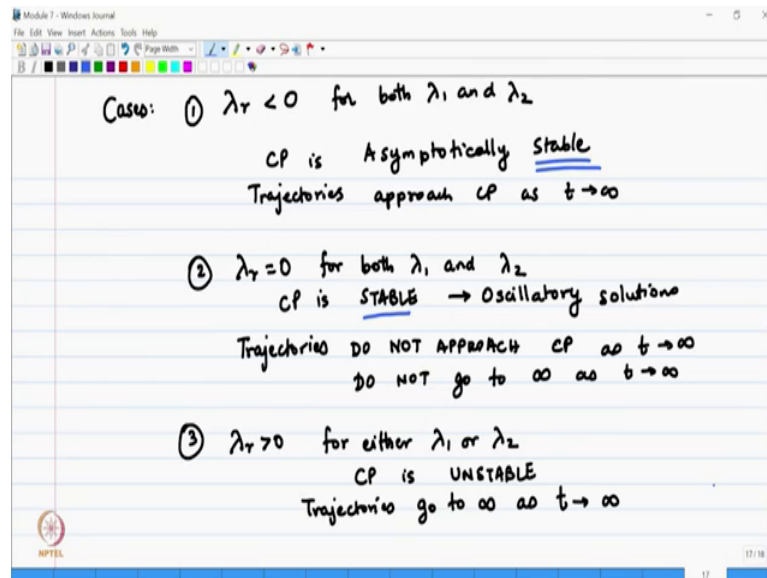 Module 7 - Windows Journal
File Edit View Insert Actions Tools Help
Page Width
B I
Cases: ① λr < 0 for both λ1 and λ2
CP is Asymptotically Stable
Trajectories approach CP as t → ∞
② λr = 0 for both λ1 and λ2
CP is STABLE → Oscillatory solutions
Trajectories DO NOT APPROACH CP as t → ∞
DO NOT go to ∞ as t → ∞
③ λr > 0 for either λ1 or λ2
CP is UNSTABLE
Trajectories go to ∞ as t → ∞
NPTEL
17/18
17